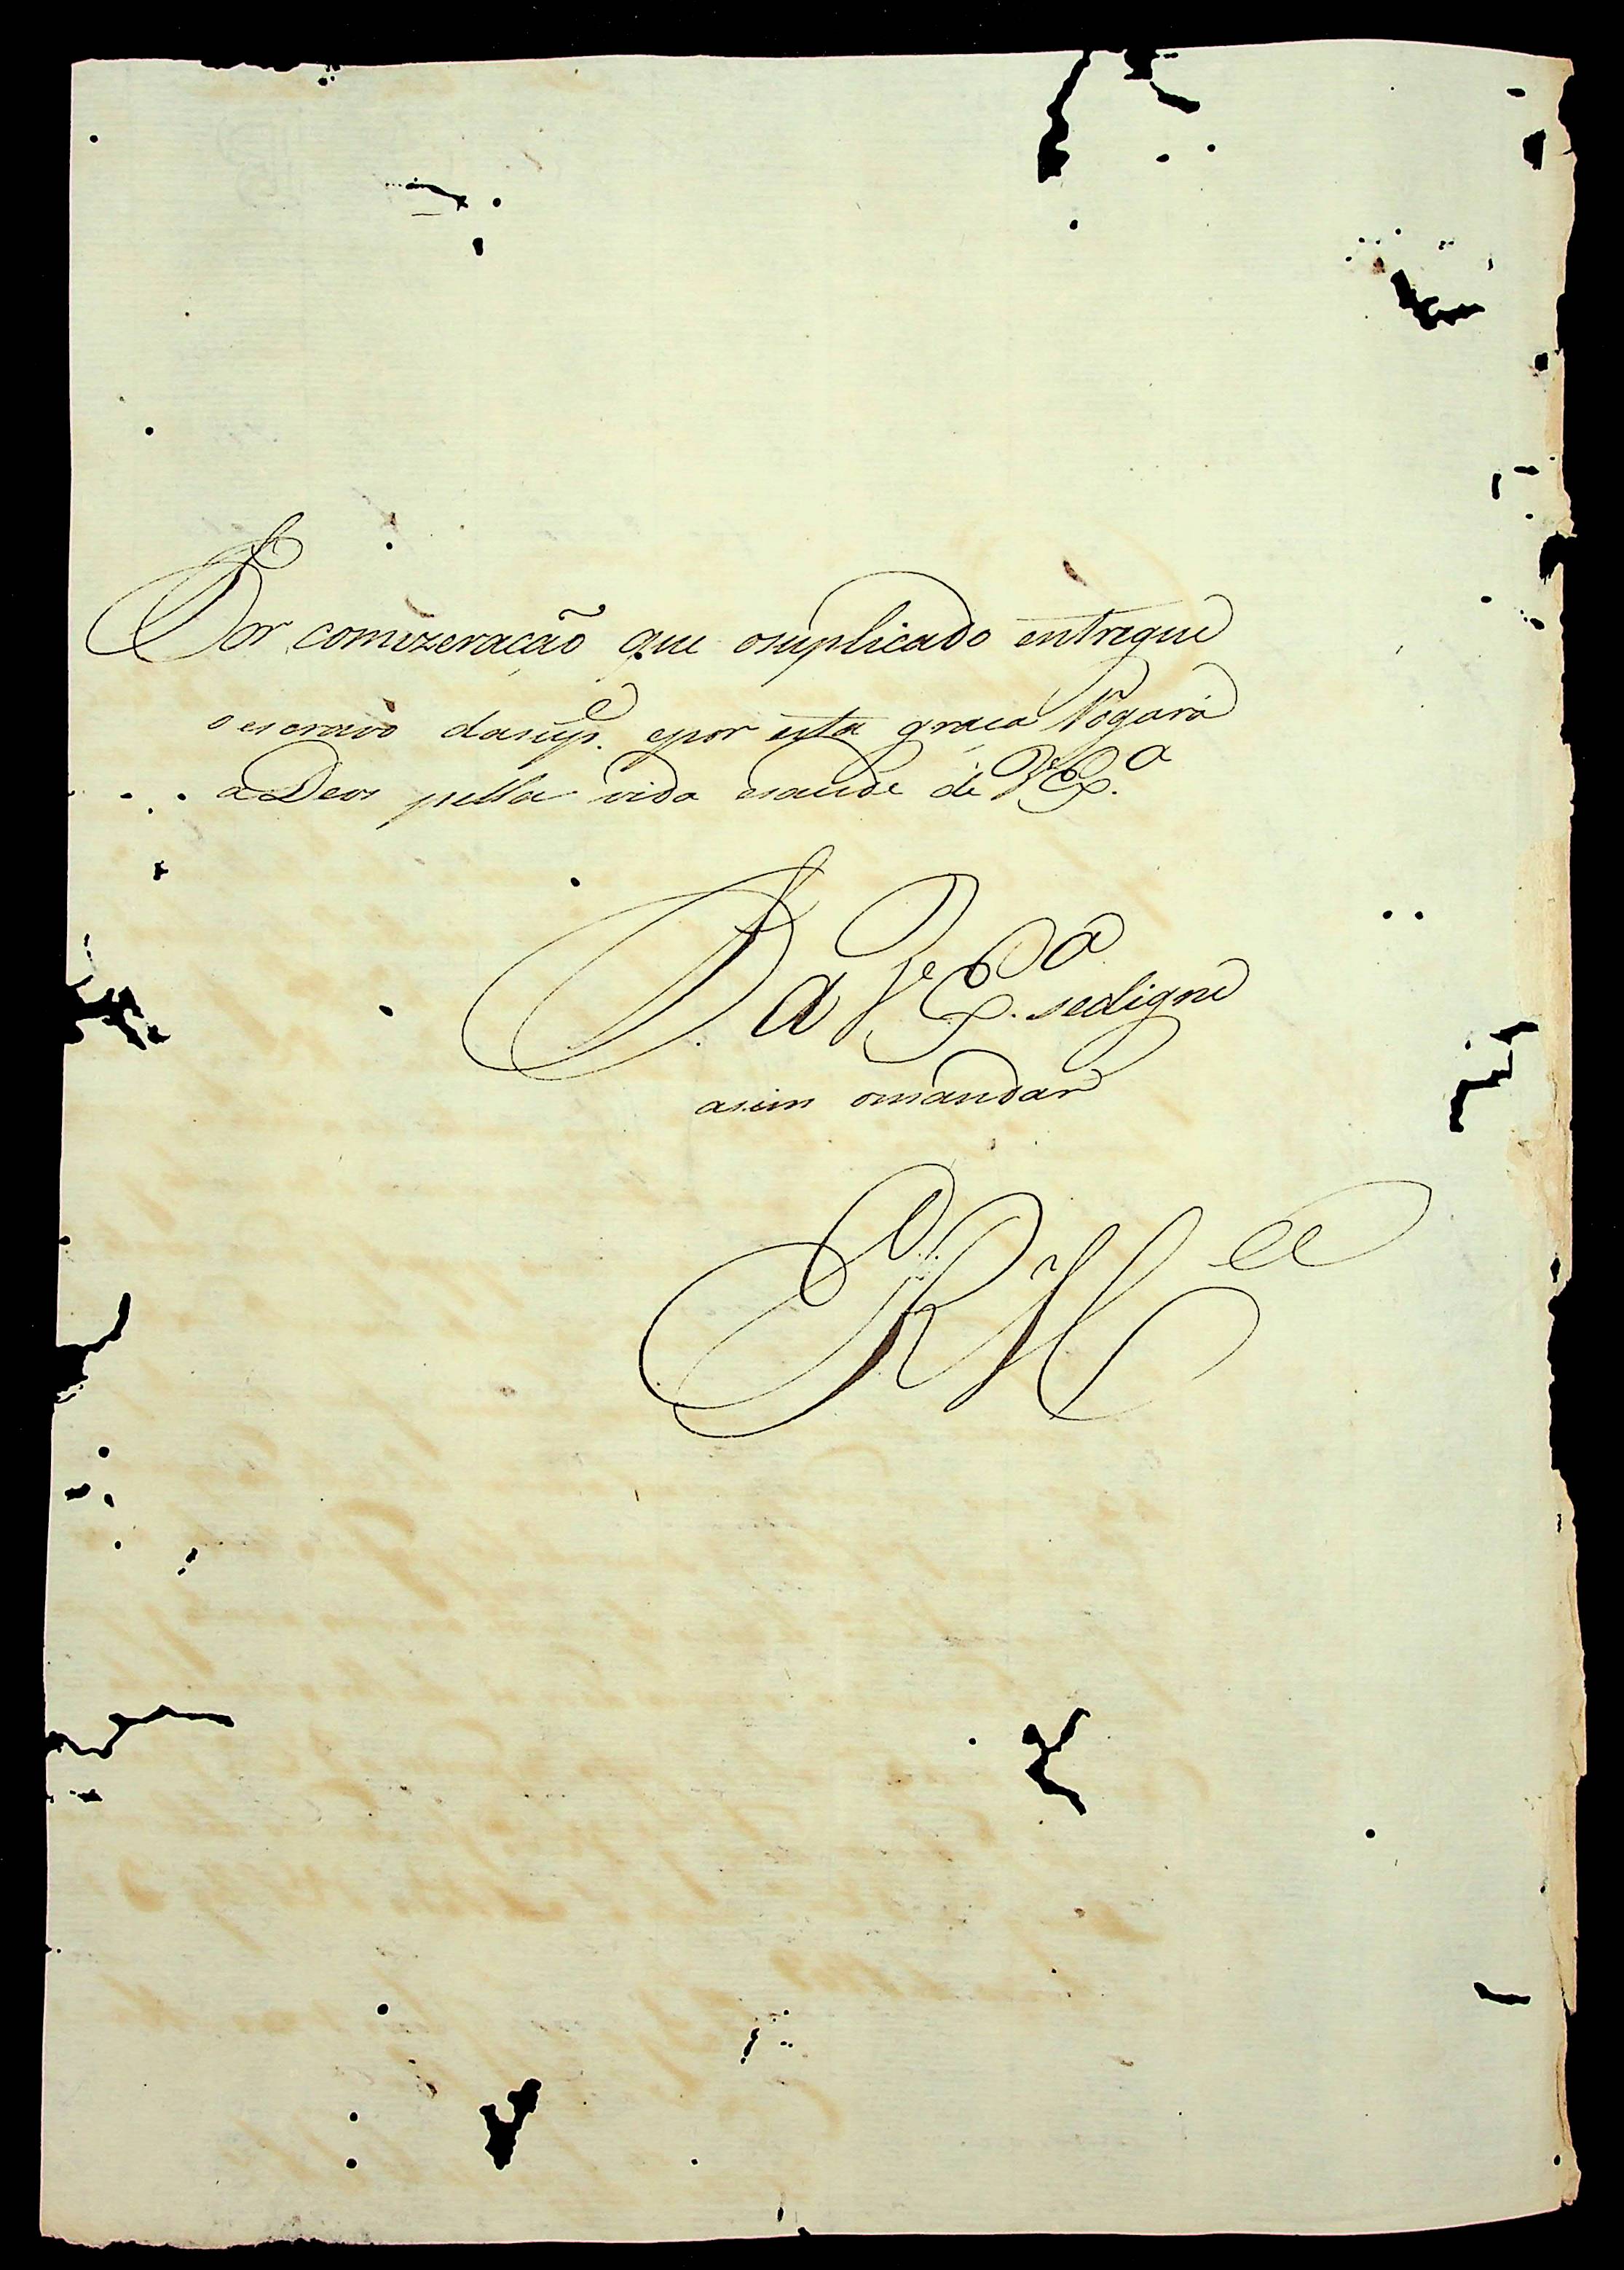 Por comizeracaõ que osuplicado entregue
o escravo dasup.e epor esta graça Rogará
a Deos pella vida esaude de V Ex.a
P. a V Ex.a sedigne
asim omandar
E R M.ce